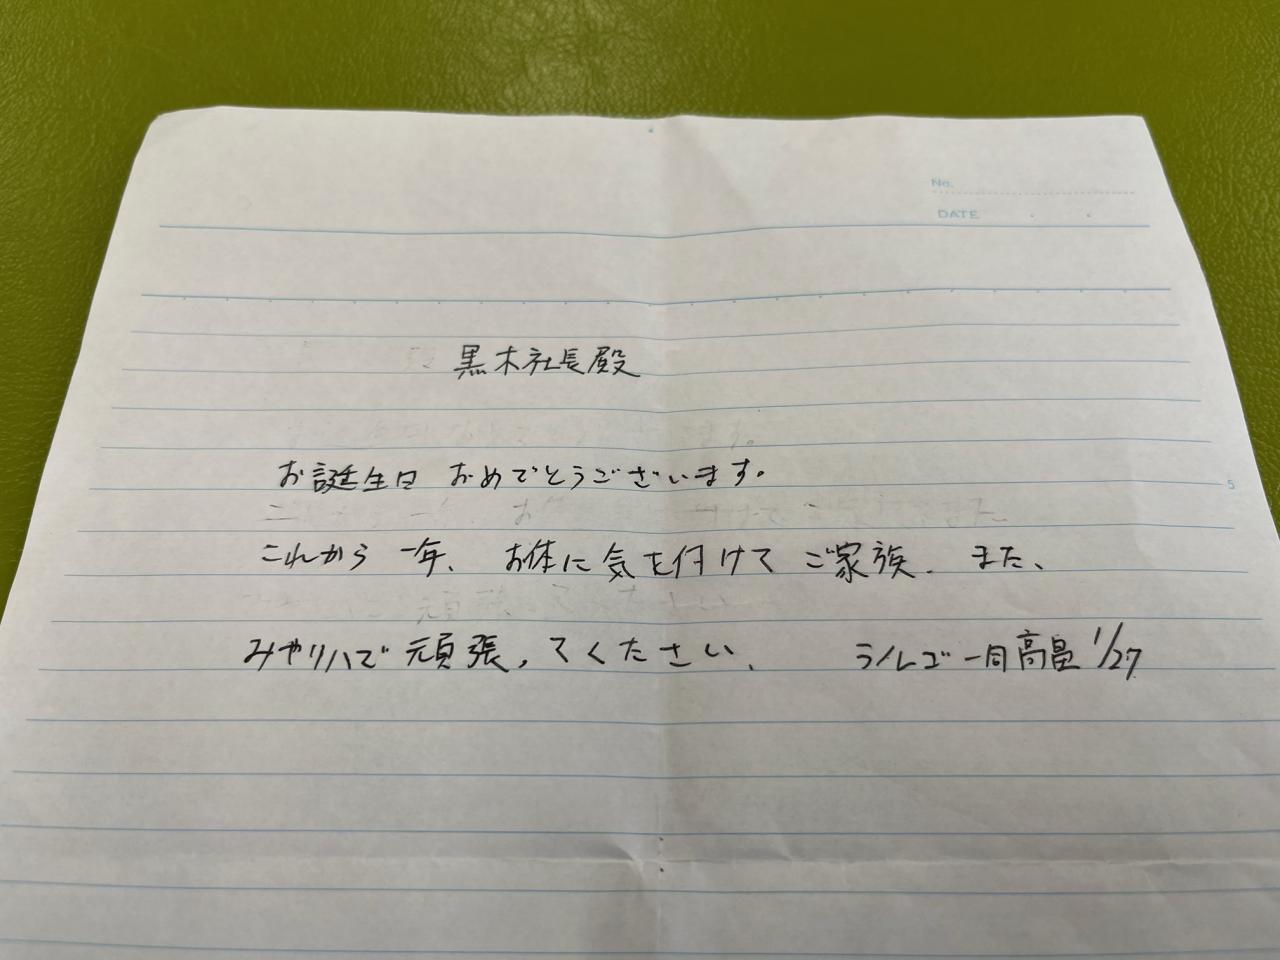 No.
DATE
黒木社長殿
お誕生日 おめでとうございます。
5
これから 一年、お体に気を付けて ご家族、また、
みやリハで 頑張ってください、 ラルゴ一同高畠 1/27